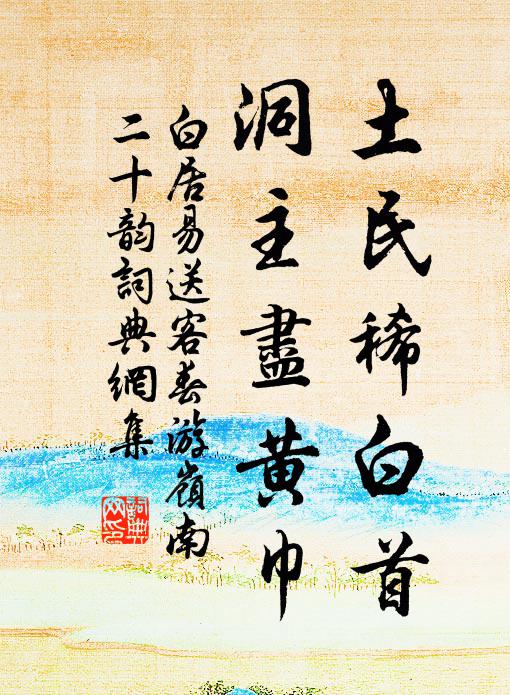 土民稀白首
洞主盡黃巾
白居易送客春游嶺南
二十韵詞典網集